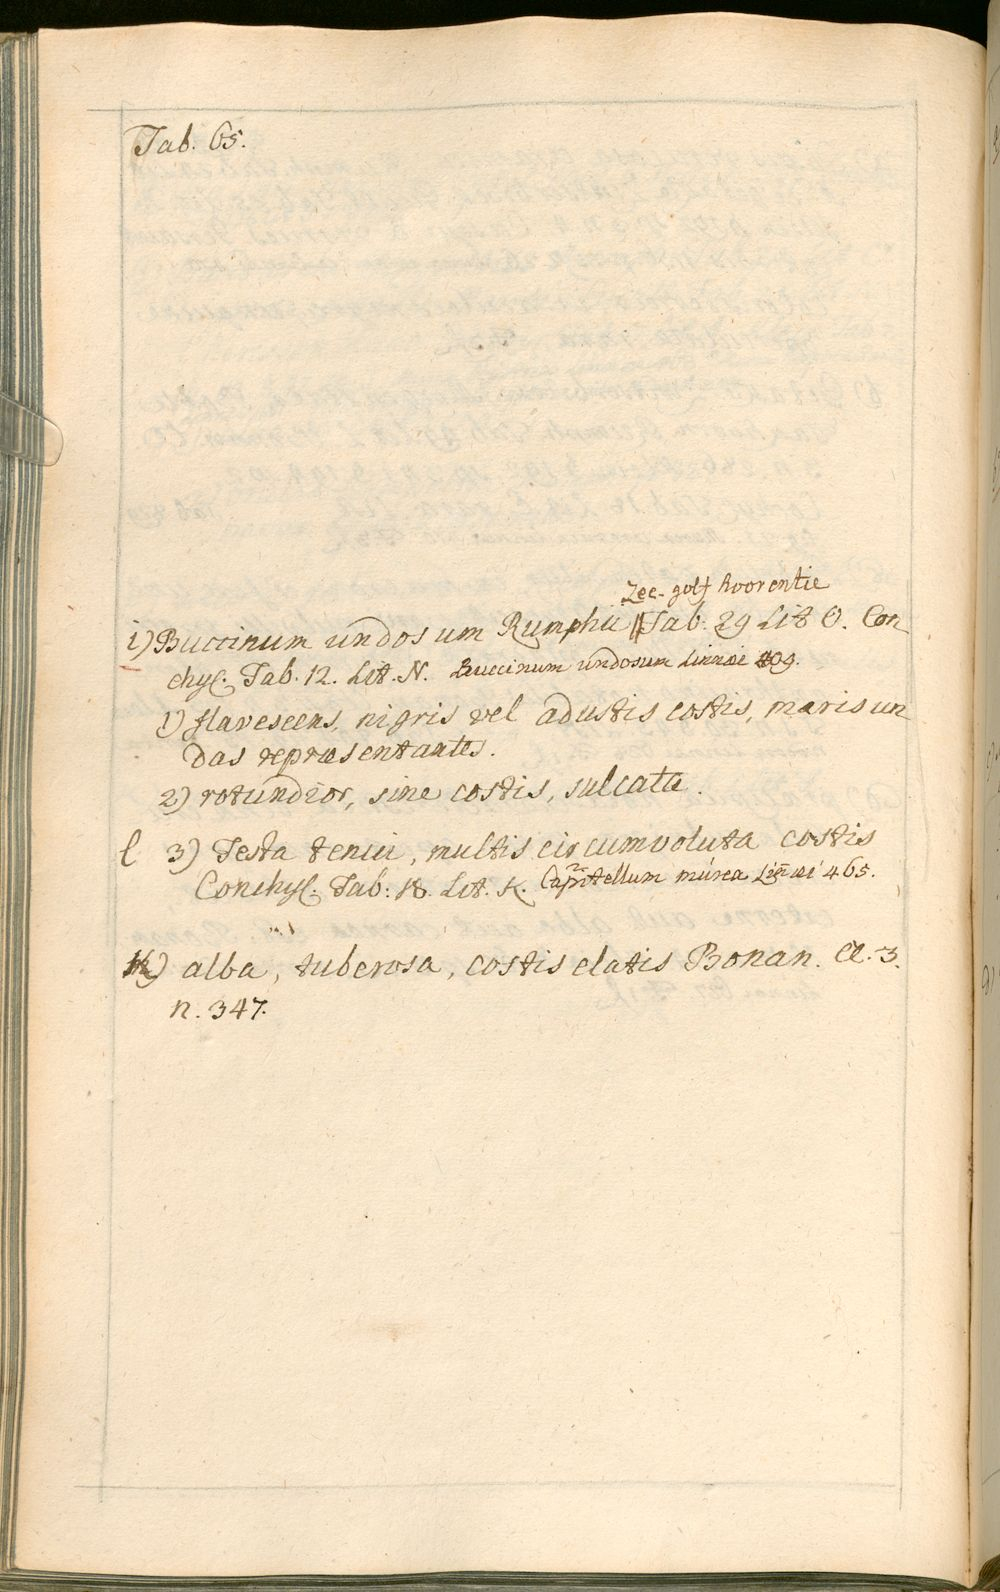 Tab. 65.
Zee-golf hoorentie
i) Buccinum undosum Rumphii || Tab. 29 Lit O. Con
chyl. Tab. 12. Lit. N. Buccinum undosum Linnæi 409.
1) flavescens, nigris vel adustis costis, maris un
das repræsentantes.
2) rotundior, sine costis, sulcata.
l 3) Testa tenui, multis circumvoluta costis
Conchyl. Tab: 18. Lit. K. Capitellum murex Linnæi 465.
k) alba, tuberosa, costis elatis Bonan. Cl. 3.
n. 347.